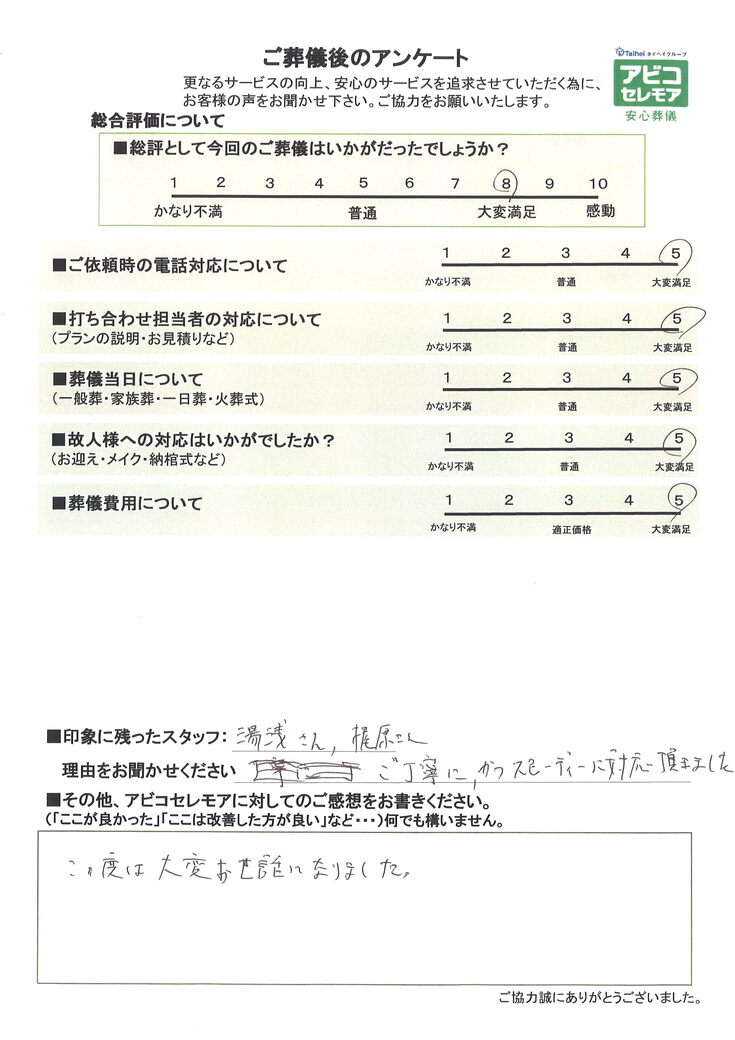 ご葬儀後のアンケート
Taihei タイヘイグループ
アビコ
セレモア
安心葬儀
更なるサービスの向上、安心のサービスを追求させていただく為に、
お客様の声をお聞かせ下さい。ご協力をお願いいたします。
総合評価について
■総評として今回のご葬儀はいかがだったでしょうか?
1 2 3 4 5 6 7 8 9 10
かなり不満 普通 大変満足 感動
■ご依頼時の電話対応について
1 2 3 4 5
かなり不満 普通 大変満足
■打ち合わせ担当者の対応について
(プランの説明・お見積りなど)
1 2 3 4 5
かなり不満 普通 大変満足
■葬儀当日について
(一般葬・家族葬・一日葬・火葬式)
1 2 3 4 5
かなり不満 普通 大変満足
■故人様への対応はいかがでしたか?
(お迎え・メイク・納棺式など)
1 2 3 4 5
かなり不満 普通 大変満足
■葬儀費用について
1 2 3 4 5
かなり不満 適正価格 大変満足
■印象に残ったスタッフ: 湯浅さん, 梶原さん
理由をお聞かせください ご丁寧に, かつスピーディーに対応頂きました
■その他、アビコセレモアに対してのご感想をお書きください。
(「ここが良かった」「ここは改善した方が良い」など・・・)何でも構いません。
この度は大変お世話になりました。
ご協力誠にありがとうございました。